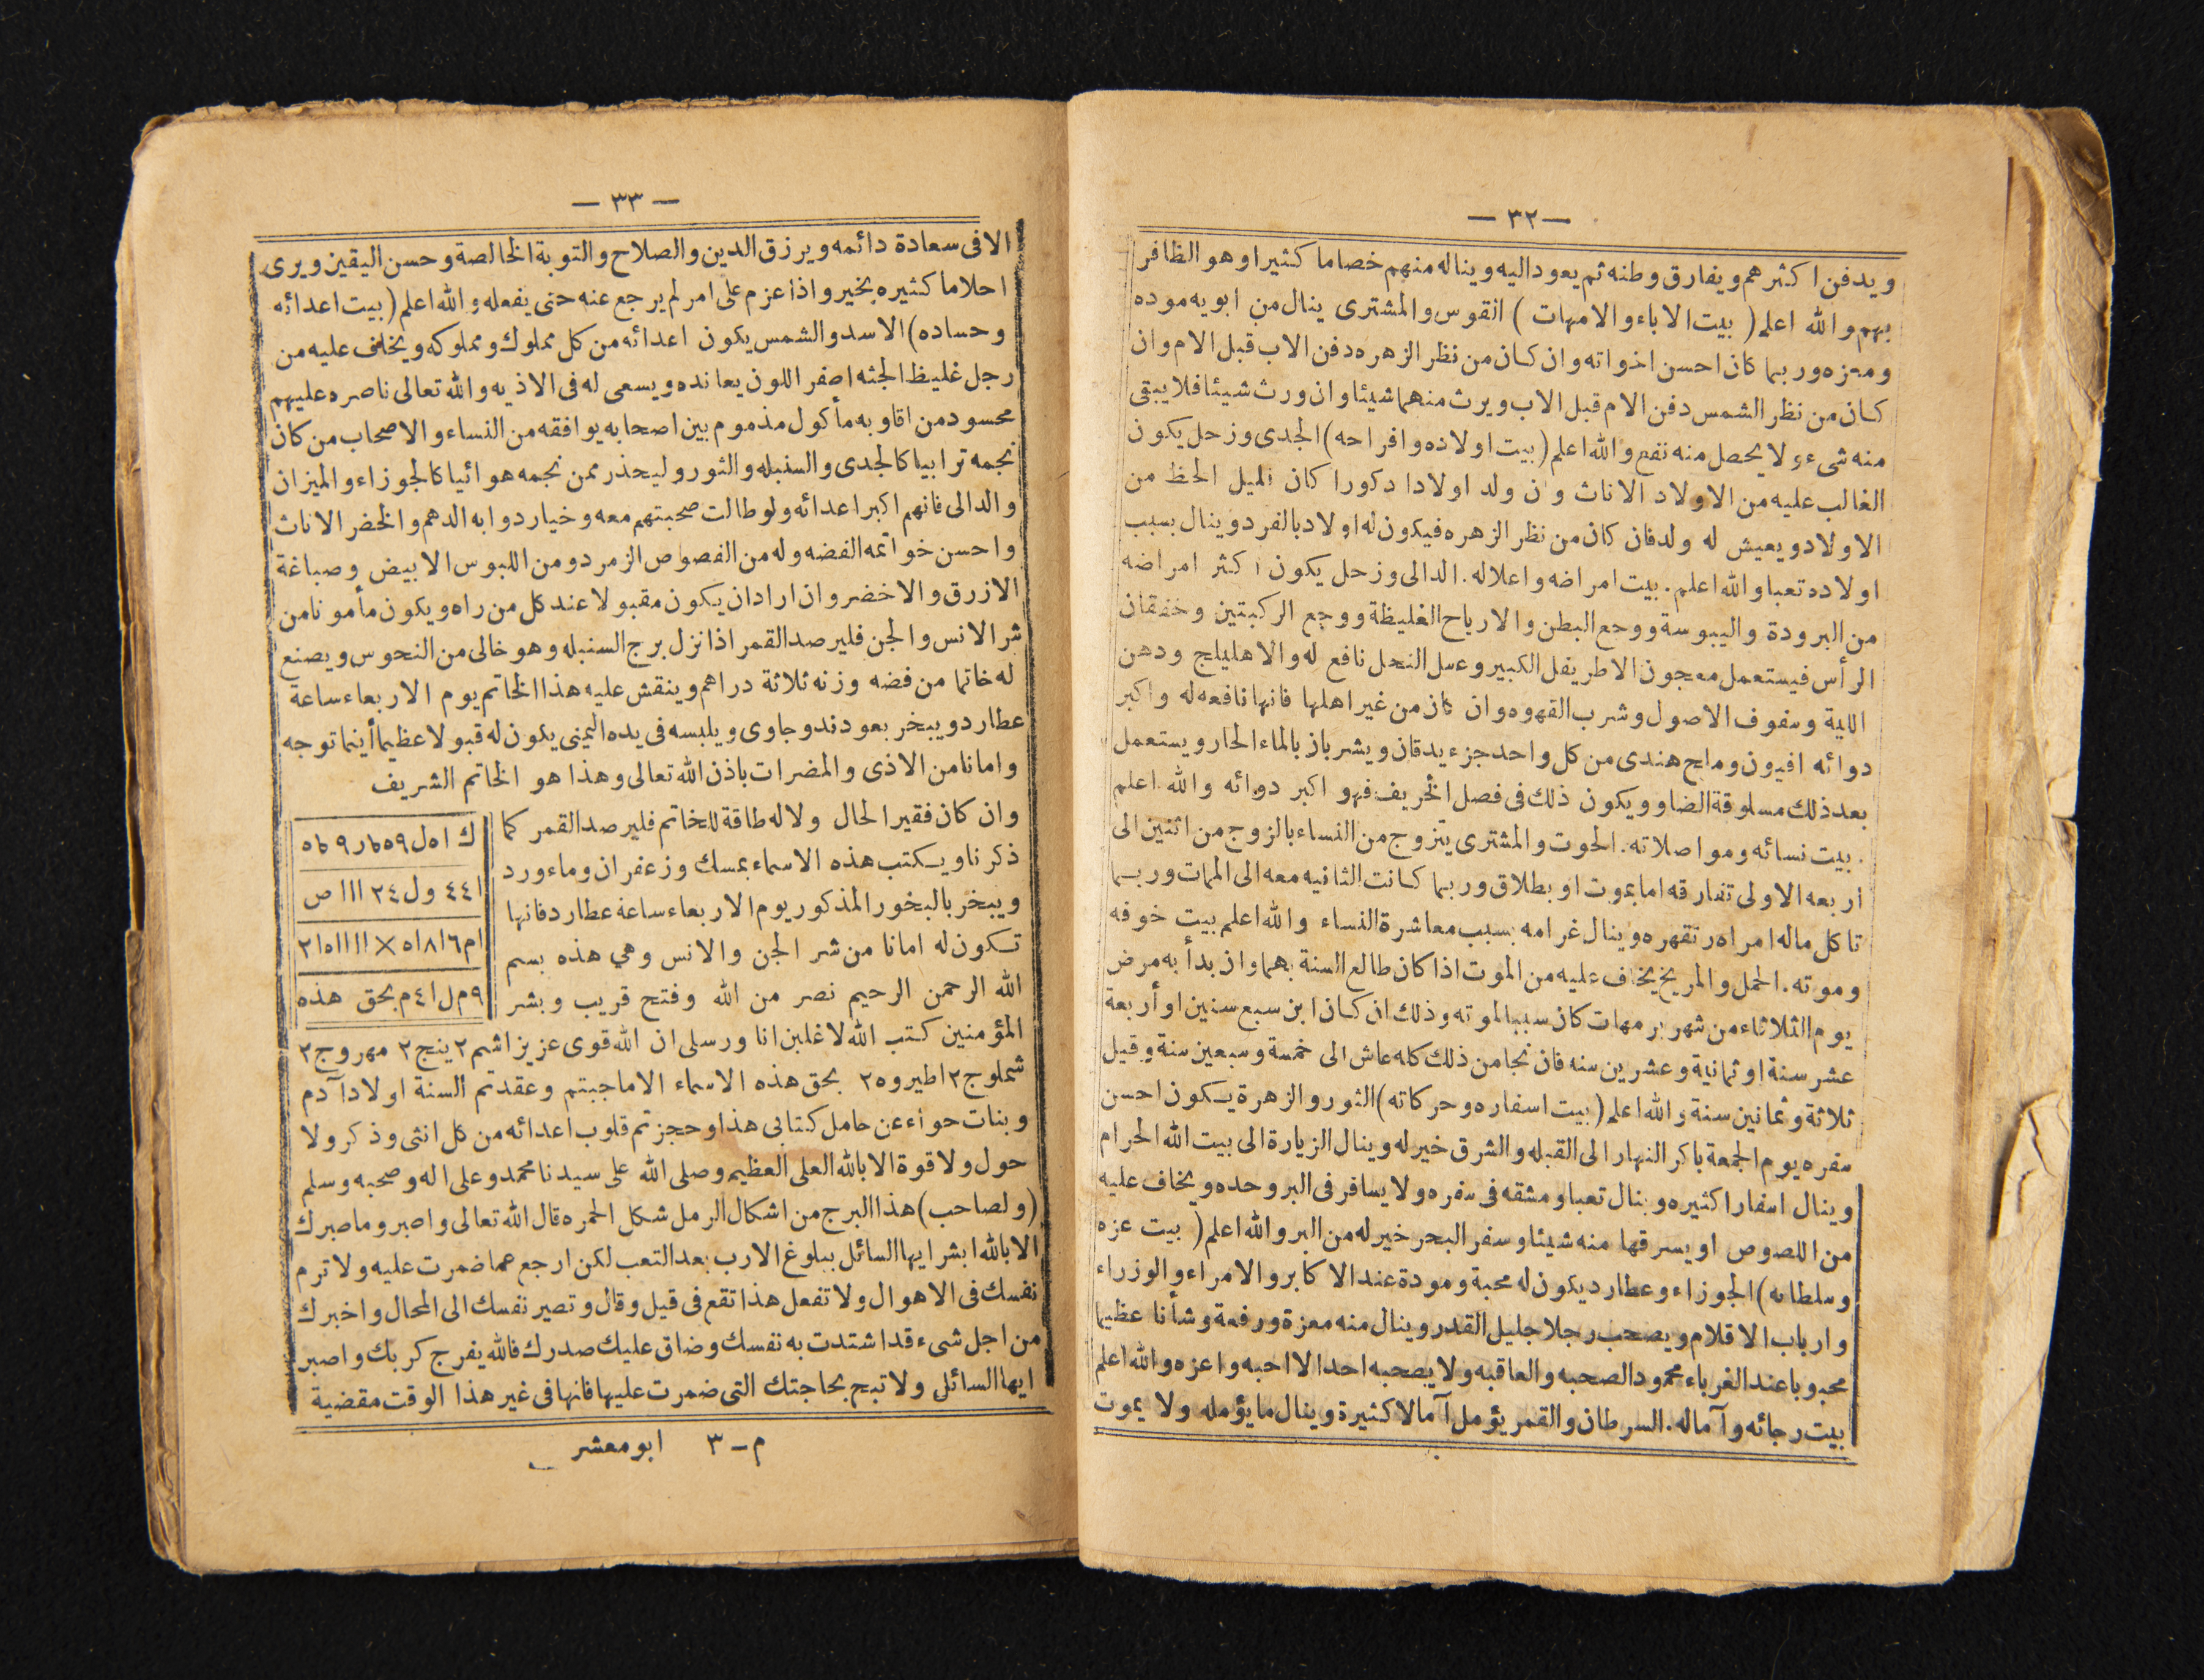 — ٣٢ —
ويدفن اكثرهم ويفارق وطنه ثم يعود اليه ويناله منهم خصاما كثيرا وهو الظافر
بهم والله اعلم ( بيت الاباء والامهات ) القوس والمشترى ينال من ابويه موده
ومعزه وربما كان احسن اخواته وان كان من نظر الزهره دفن الاب قبل الام وان
كان من نظر الشمس دفن الام قبل الاب ويرث منهما شيئا وان ورث شيئا فلا يبقى
منه شىء ولا يحصل منه نفع والله اعلم (بيت اولاده وافراحه) الجدى وزحل يكون
الغالب عليه من الاولاد الاناث وان ولد اولادا دكورا كان قليل الحظ من
الاولاد ويعيش له ولد فان كان من نظر الزهره فيكون له اولاد بالفرد وينال بسبب
اولاده تعبا والله اعلم . بيت امراضه واعلاله . الدالى وزحل يكون اكثر امراضه
من البرودة واليبوسة ووجع البطن والارياح الغليظة ووجع الركبتين وخفقان
الرأس فيستعمل معجون الاطريفل الكبير وعسل النحل نافع له والاهليلج ودهن
اللية وسفوف الاصول وشرب القهوه وان كان من غير اهلها فانها نافعه له واكبر
دوائه افيون وملح هندى من كل واحد جزء يدقان ويشربان بالماء الحار ويستعمل
بعد ذلك مسلوقة الضا وويكون ذلك فى فصل الخريف فهو اكبر دوائه والله اعلم
. بيت نسائه ومواصلاته . الحوت والمشترى يتزوج من النساء بالزوج من اثنين الى
اربعه الاولى تفارقه اما بموت او بطلاق وربما كانت الثانيه معه الى الممات وربما
تاكل ماله امراه رتقهره وينال غرامه بسبب معاشرة النساء والله اعلم بيت خوفه
وموته . الحمل والمريخ يخاف عليه من الموت اذا كان طالع السنة بهما وان بدأ به مرض
يوم الثلاثاء من شهر برمهات كان سببا لموته وذلك ان كان ابن سبع سنين او أربعة
عشر سنة او ثمانية وعشرين سنه فان نجا من ذلك كله عاش الى خمسة وسبعين سنة وقيل
ثلاثة وثمانين سنة والله اعلم (بيت اسفاره وحركاته) الثور والزهرة يكون احسن
سفره يوم الجمعة باكر النهار الى القبله والشرق خير له وينال الزيارة الى بيت الله الحرام
وينال اسفارا كثيره وينال تعبا ومشقه فى سفره ولا يسافر فى البر وحده ويخاف عليه
من اللصوص او يسرقها منه شيئا وسفر البحر خير له من البر والله اعلم ( بيت عزه
وسلطانه) الجوزاء وعطارد يكون له محبة ومودة عند الاكابر والامراء والوزراء
وارباب الاقلام ويصحب رجلا جليل القدر وينال منه معزة ورفعة وشأنا عظيما
محبوبا عند الغرباء محمود الصحبه والعاقبه ولا يصحبه احد الا احبه واعزه والله اعلم
بيت رجائه وآماله . السرطان والقمر يؤمل آمالا كثيرة وينال ما يؤمله ولا يموت
— ٣٣ —
الا فى سعادة دائمه ويرزق الدين والصلاح والتوبة الخالصة وحسن اليقين ويرى
احلاما كثيره بخير واذا عزم على امر لم يرجع عنه حتى يفعله والله اعلم ( بيت اعدائه
وحساده) الاسد والشمس يكون اعدائه من كل مملوك ومملوكه ويخاف عليه من
رجل غليظ الجثه اصفر اللون يعانده ويسعى له فى الاذيه والله تعالى ناصره عليهم
محسود من اقاربه مأكول مذموم بين اصحابه يوافقه من النساء والاصحاب من كان
نجمه ترابيا كالجدى والسنبله والثور وليحذر ممن نجمه هوائيا كالجوزاء والميزان
والدالى فانهم اكبر اعدائه ولو طالت صحبتهم معه وخيار دوابه الدهم والخضر الاناث
واحسن خواتمه الفضه وله من الفصوص الزمرد ومن اللبوس الابيض وصباغة
الازرق والاخضر وان اراد ان يكون مقبولا عند كل من راه ويكون مأمونا من
شر الانس والجن فليرصد القمر اذا نزل برج السنبله وهو خالى من النحوس ويصنع
له خاتما من فضه وزنه ثلاثة دراهم وينقش عليه هذا الخاتم يوم الاربعاء ساعة
عطارد ويبخر بعود ند وجاوى ويلبسه فى يده اليمنى يكون له قبولا عظيما أينما توجه
وامانا من الاذى والمضرات باذن الله تعالى وهذا هو الخاتم الشريف
وان كان فقير الحال ولا له طاقة للخاتم فليرصد القمر كما
ذكرنا ويكتب هذه الاسماء بمسك وزعفران وماء ورد
ويبخر بالبخور المذكور يوم الاربعاء ساعة عطارد فانها
تكون له امانا من شر الجن والانس وهي هذه بسم
الله الرحمن الرحيم نصر من الله وفتح قريب وبشر
ا٤٤ ول ٢٤ ااا ص
ام٦ا٨ا٥ × ااااا٥ا٢
٩م ل ا٤م بحق هذه
المؤمنين كتب الله لاغلبن انا ورسلى ان الله قوى عزيز اشم ٢ ينج ٢ مهروج ٢
شملوج ٢ اطيروه ٢ بحق هذه الاسماء الا ما جبتم وعقدتم السنة اولاد آدم
وبنات حواء عن حامل كتابى هذا وحجزتم قلوب اعدائه من كل انثى وذكر ولا
حول ولا قوة الا بالله العلى العظيم وصلى الله على سيدنا محمد وعلى اله وصحبه وسلم
(ولصاحب) هذا البرج من اشكال الرمل شكل الحمره قال الله تعالى واصبر وما صبرك
الا بالله ابشر ايها السائل ببلوغ الارب بعد التعب لكن ارجع عما ضمرت عليه ولا ترم
نفسك فى الاهوال ولا تفعل هذا تقع فى قيل وقال وتصير نفسك الى المحال واخبرك
من اجل شىء قد اشتدت به نفسك وضاق عليك صدرك فالله يفرج كربك واصبر
ايها السائل ولا تبح بحاجتك التى ضمرت عليها فانها فى غير هذا الوقت مقضية
م ــ ٣ ابو معشر